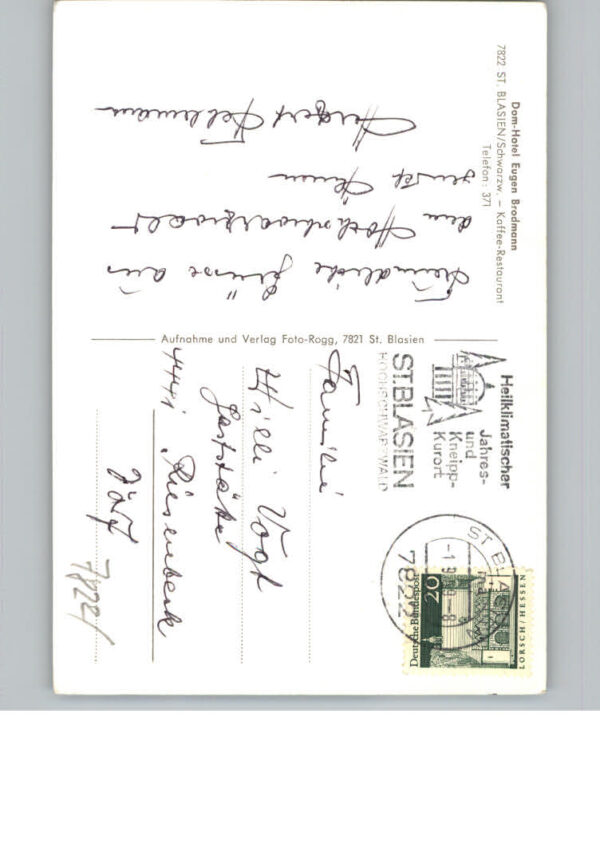 Dom-Hotel Eugen Brodmann
7822 ST. BLASIEN/Schwarzw. – Kaffee-Restaurant
Telefon: 371
Freundliche Grüsse aus
dem Hochschwarzwald
Herbert
Aufnahme und Verlag Foto-Rogg, 7821 St. Blasien
Heilklimatischer
Jahres-
und
Kneipp-
Kurort
ST. BLASIEN
HOCHSCHWARZWALD
ST BLA
7822
20
Deutsche Bundespost
LORSCH / HESSEN
Familie
Willi Vogt
Gaststätte
4441 Riesenbeck
Dorf
7822/